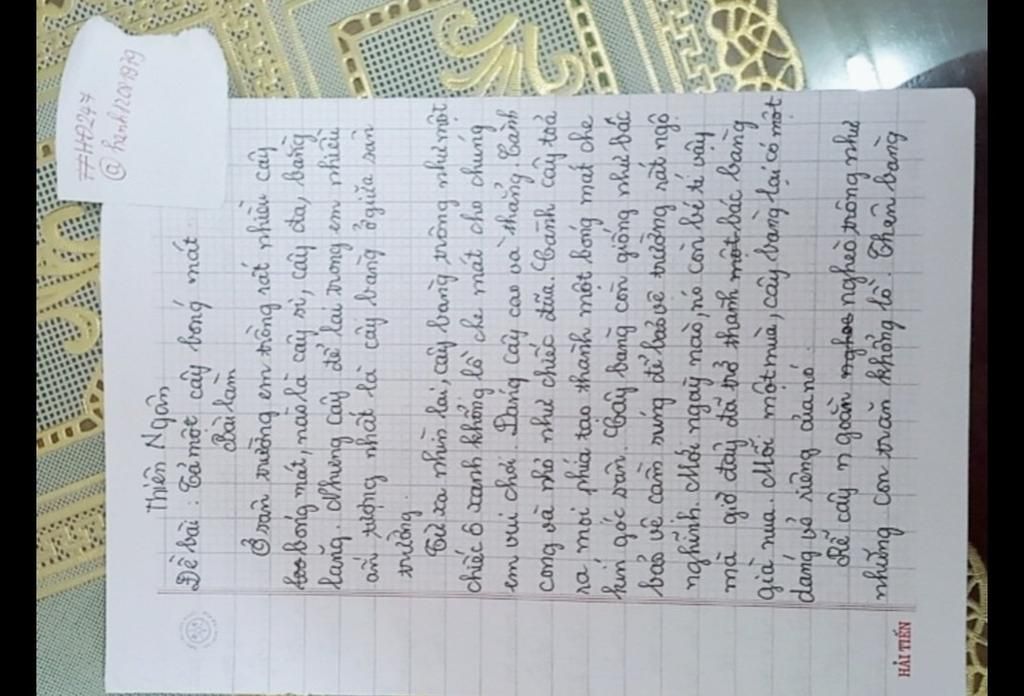 ##HA247
@hanh12091979
Thiên Ngân
Đề bài: Tả một cây bóng mát.
Bài làm
Ở sân trường em trồng rất nhiều cây
bóng mát, nào là cây si, cây đa, bằng
lăng. Nhưng cây để lại trong em nhiều
ấn tượng nhất là cây bàng ở giữa sân
trường.
Từ xa nhìn lại, cây bàng trông như một
chiếc ô xanh khổng lồ che mát cho chúng
em vui chơi. Dáng cây cao và thẳng. Cành
cong và nhỏ như chiếc đũa. Cành cây toả
ra mọi phía tạo thành một bóng mát che
kín góc sân. Cây bàng còn giống như bác
bảo vệ cầm súng để bảo vệ trường rất ngộ
nghĩnh. Mới ngày nào, nó còn bé tí vậy
mà giờ đây đã trở thành một bác bàng
già nua. Mỗi một mùa, cây bàng lại có một
dáng vẻ riêng của nó.
Rễ cây ngoằn nghoè nghèo trông như
những con trăn khổng lồ. Thân bàng
HẢI TIẾN